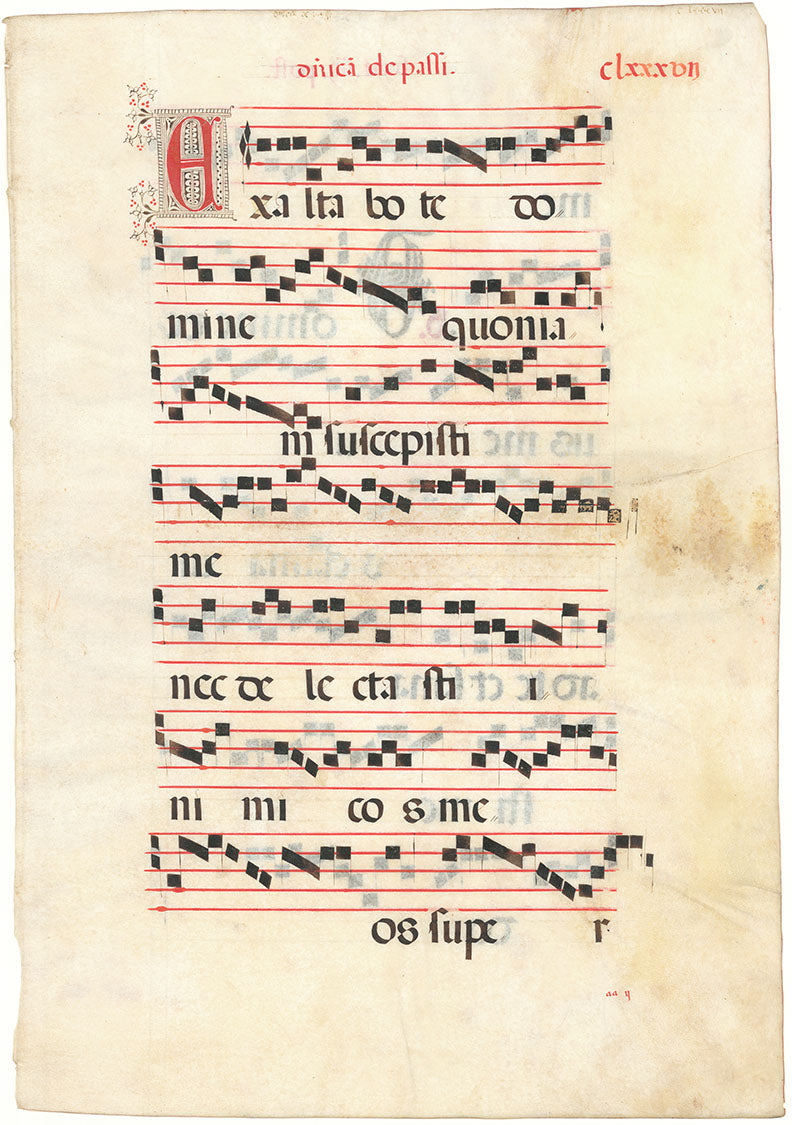 dn̄icā de paſſi. clxxxvij
Exa lta bo te do
mine quonia
m ſuſcepiſti
me
nec de le cta ſti i
ni mi co s me
os ſupe r
aa ij